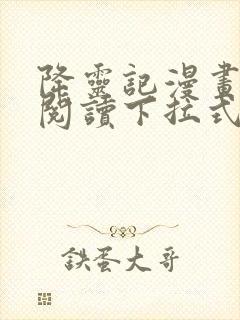 降靈記漫畫
閱讀下拉式
鉄蛋大哥